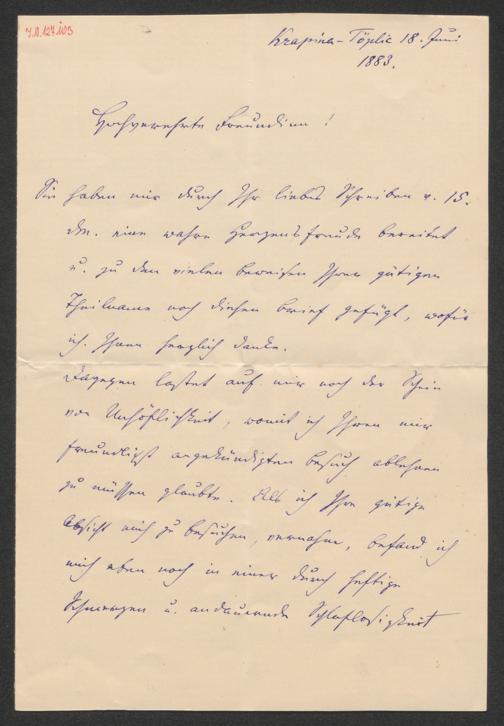 J.N. 127.103
Krapina-Töplic 18. Juni
1883.
Hochverehrte Freundinn!
Sie haben mir durch Ihr liebes Schreiben v. 15.
dM. eine wahre Herzensfreude bereitet
u. zu den vielen Beweisen Ihrer gütigen
Theilname noch diesen Brief gefügt, wofür
ich Ihnen herzlich danke.
Dagegen lastet auf mir noch der Schein
von Unhöflichkeit, womit ich Ihren mir
freundligst angekündigten Besuch ablehnen
zu müssen glaubte. Als ich Ihre gütige
Absicht mich zu besuchen, vernahm, befand ich
mich eben noch in einer durch heftige
Schmerzen u. andauernde Schlaflosigkeit